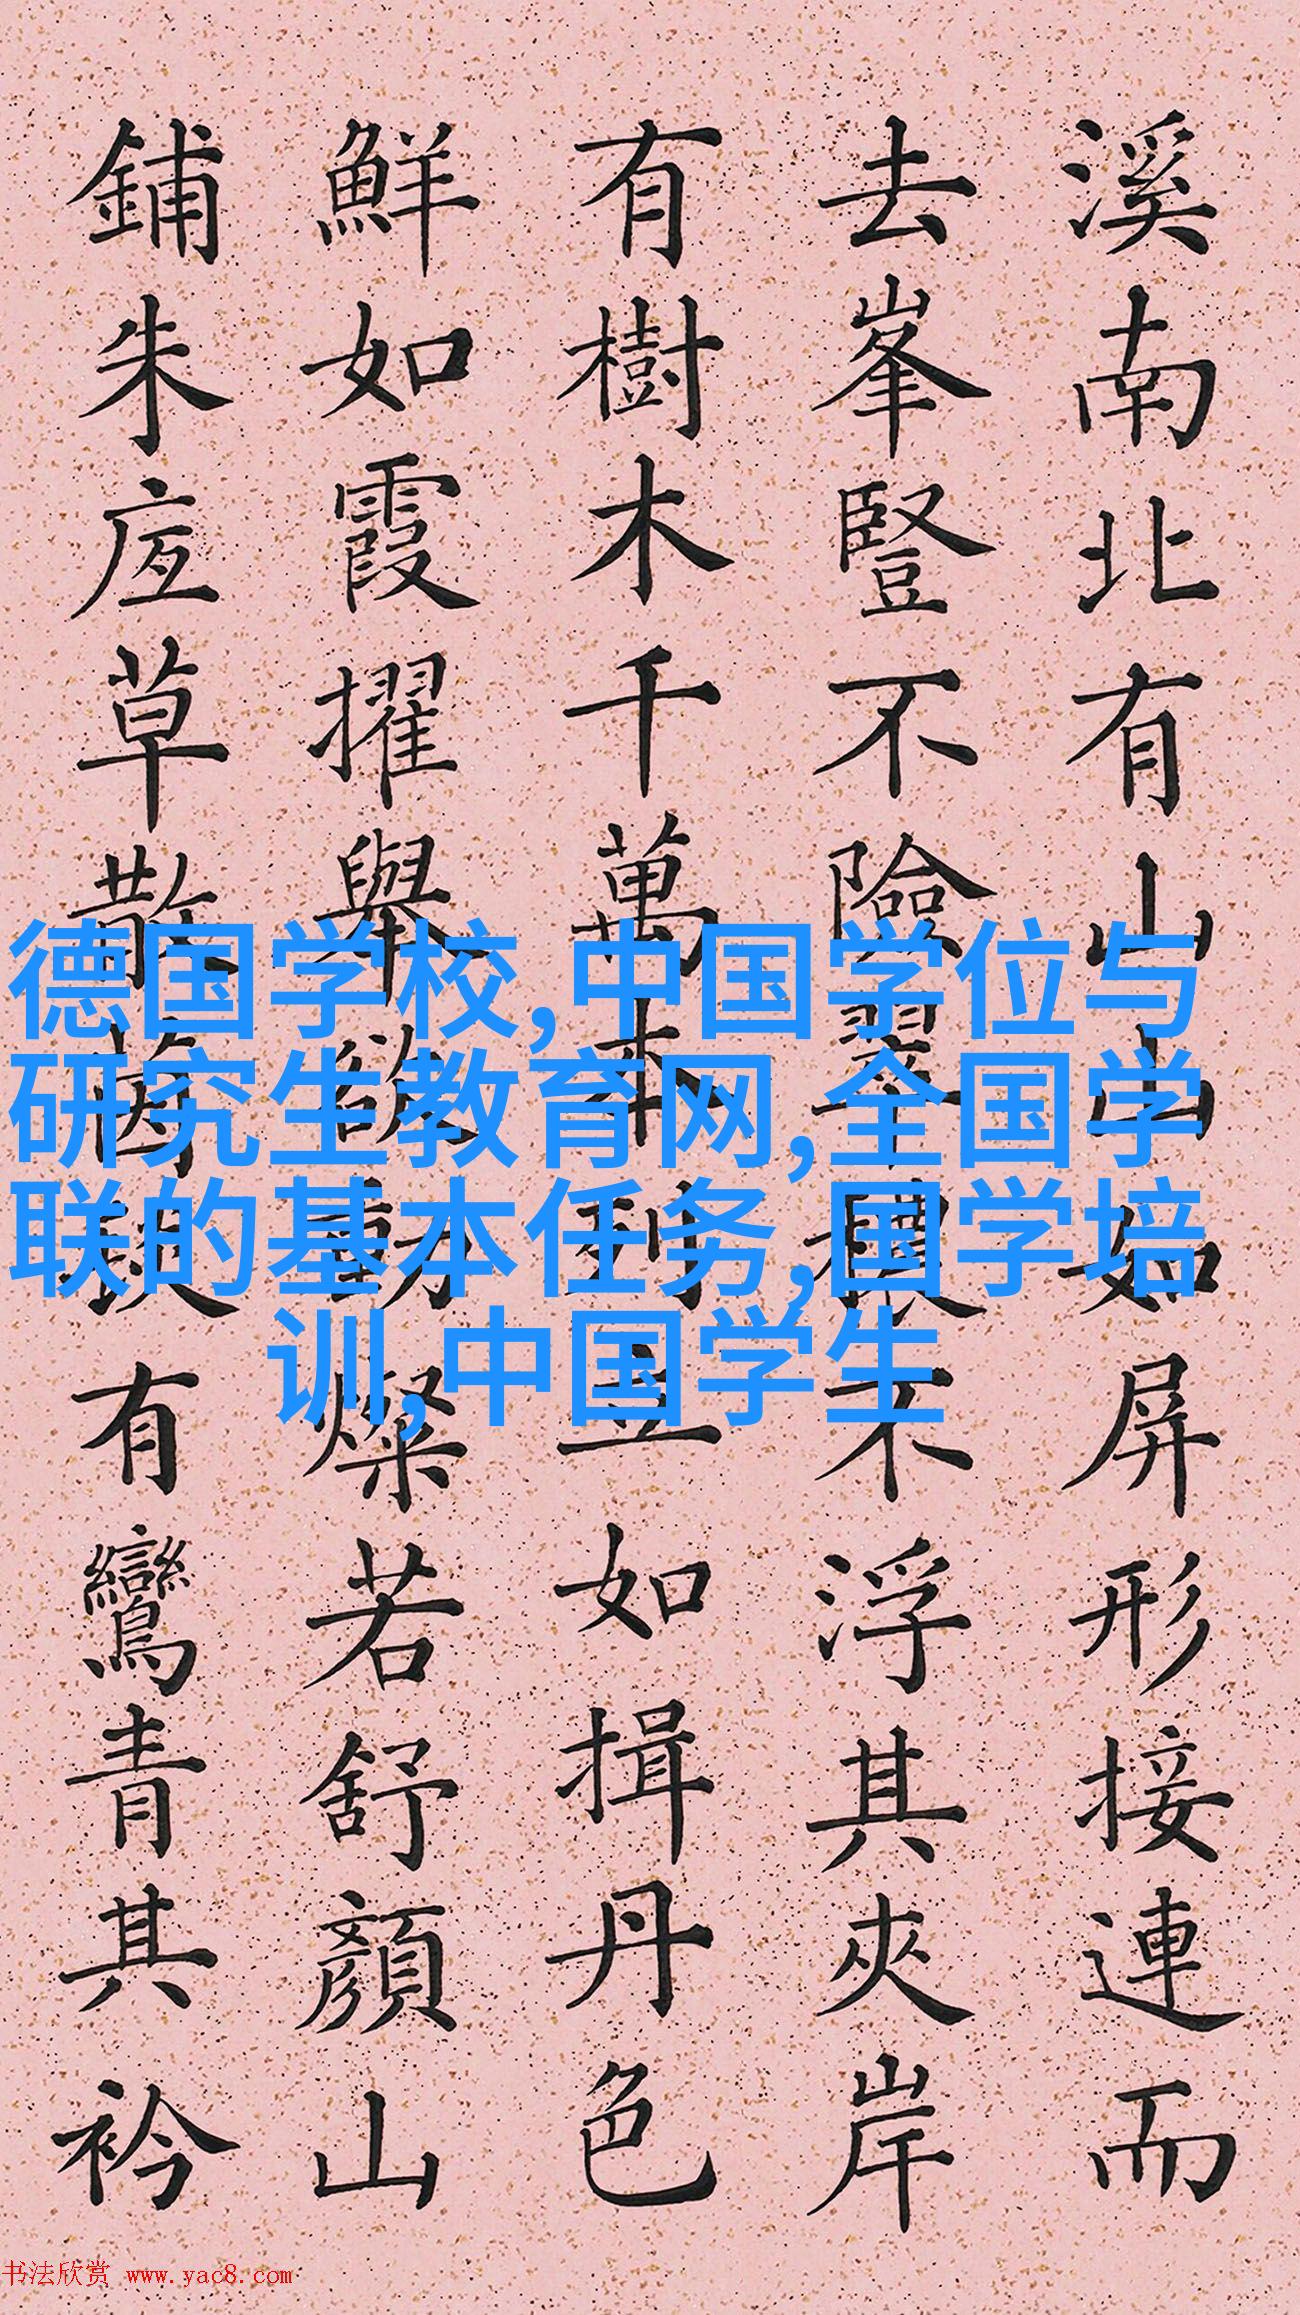 溪南北有山山如屏形接連而
去峯豎不險翠穠不浮其夾岸
有樹木千萬本列立如揖丹色
鮮如霞擢舉欲動燦若舒顏山
鋪朱底草散茵毯有鸞青其衿
德国学校,中国学位与
研究生教育网,全国学
联的基本任务,国学培
训,中国学生
书法欣赏 www.yac8.com